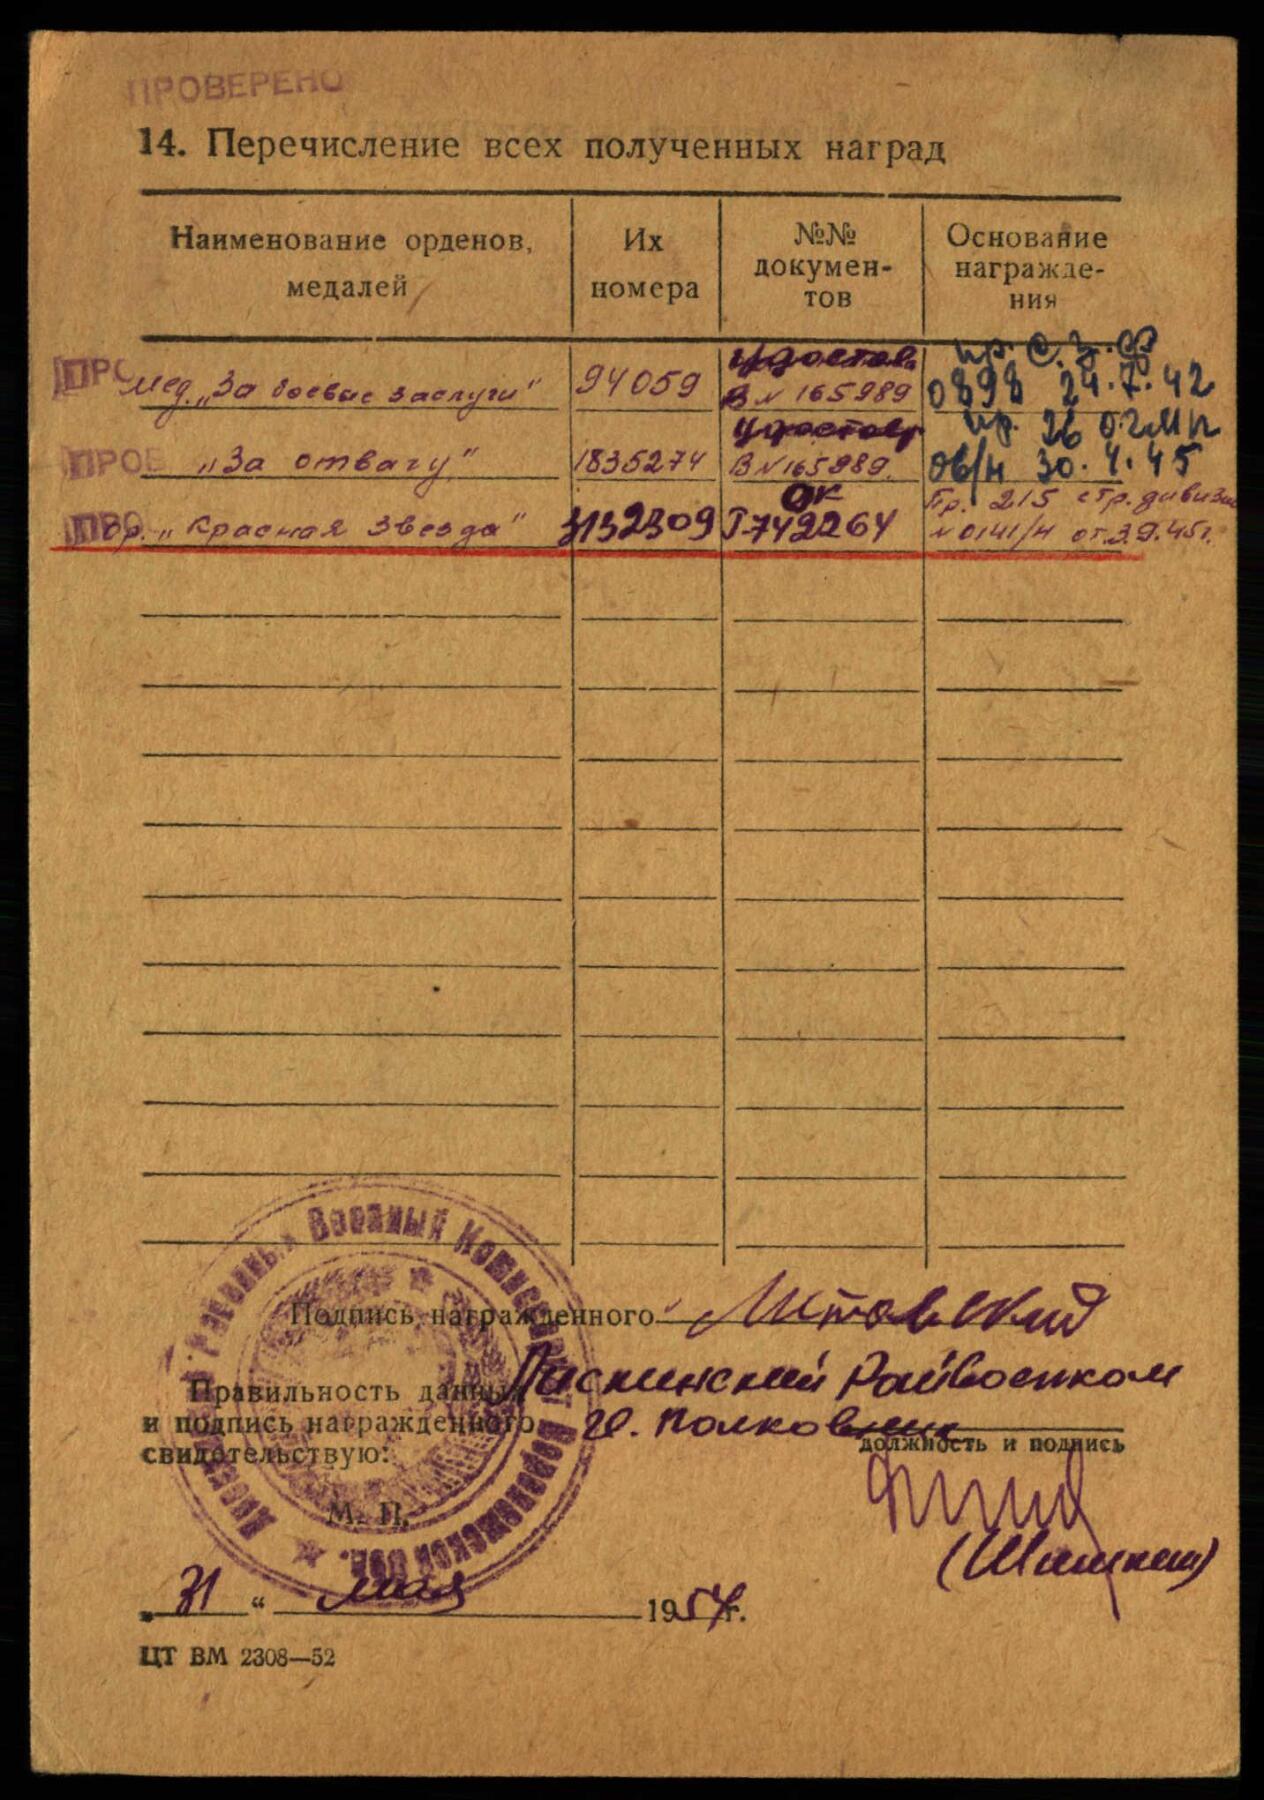 ПРОВЕРЕНО
14. Перечисление всех полученных наград
Наименование орденов, медалей
Их номера
№№ докумен-
тов
Основание награжде-
ния
ПРО мед. „За боевые заслуги" 94059 Удостов. В № 165989 пр. С.З.Ф 0898 24.7.42
ПРОВ „За отвагу" 1835274 Удостовр В № 165989. пр. 26 ОГМП 08/н 30.4.45
ор. „Красная звезда" 3132309 ОК Г-742264 Пр. 215 стр. дивизии № 0141/н от 3.9.45г.
Подпись награжденного Литовский
Правильность данных Лискинский Райвоенком
и подпись награжденного П. Полковник
свидетельствую:
должность и подпись
М. П.
(Шишкин)
„31" мая 1954г.
ЦТ ВМ 2308—52
Военный Комиссариат Воронежской обл.